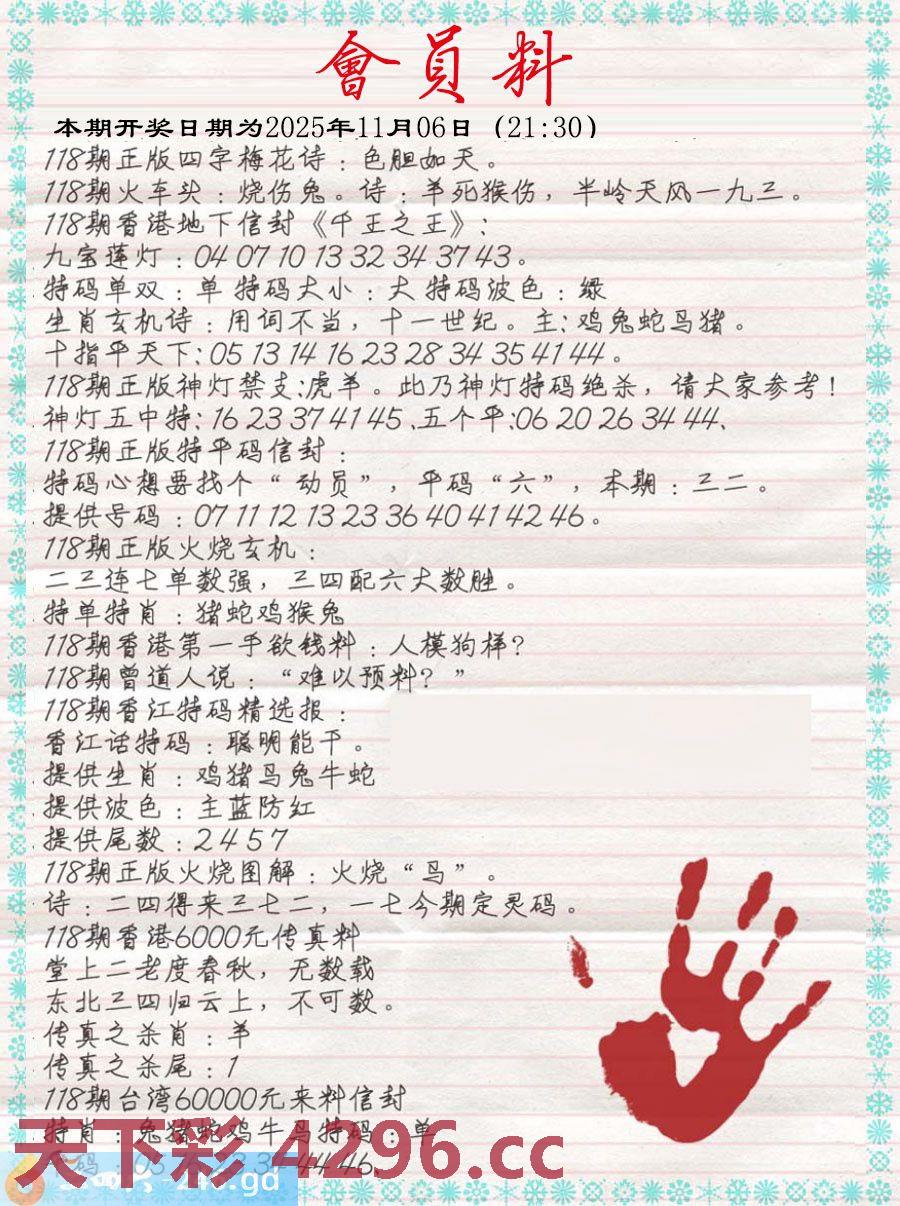 會員料
本期开奖日期为2025年11月06日（21:30）
118期正版四字梅花诗：色胆如天。
118期火车头：烧伤兔。诗：羊死猴伤，半岭天风一九三。
118期香港地下信封《千王之王》：
九宝莲灯：04 07 10 13 32 34 37 43。
特码单双：单 特码大小：大 特码波色：绿
生肖玄机诗：用词不当，十一世纪。主：鸡兔蛇马猪。
十指平天下：05 13 14 16 23 28 34 35 41 44。
118期正版神灯禁支：虎羊。此乃神灯特码绝杀，请大家参考！
神灯五中特：16 23 37 41 45、五个平：06 20 26 34 44、
118期正版特平码信封：
特码心想要找个“动员”，平码“六”，本期：三二。
提供号码：07 11 12 13 23 36 40 41 42 46。
118期正版火烧玄机：
二三连七单数强，三四配六大数胜。
特单特肖：猪蛇鸡猴兔
118期香港第一手欲钱料：人模狗样？
118期曾道人说：“难以预料？”
118期香江特码精选报：
香江话特码：聪明能干。
提供生肖：鸡猪马兔牛蛇
提供波色：主蓝防红
提供尾数：2 4 5 7
118期正版火烧图解：火烧“鸟”。
诗：二四得来三七二，一七今期定灵码。
118期香港6000元传真料
堂上二老度春秋，无数载
东北三四归云上，不可数。
传真之杀肖：羊
传真之杀尾：1
118期台湾60000元来料信封
特肖：兔猪蛇鸡牛马特码：单
44 46、
天下彩 4296.cc
.gd